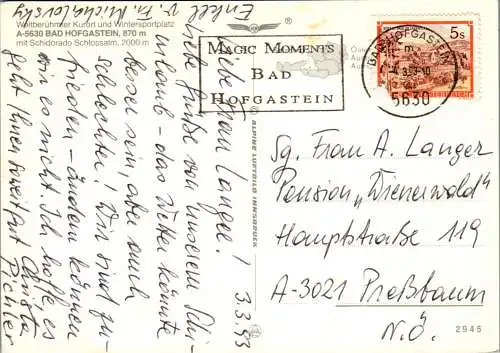 Weltberühmter Kurort und Wintersportplatz
A-5630 BAD HOFGASTEIN, 870 m
mit Schidorado Schlossalm, 2000 m
Enkel v. Fr. Michalovsky
3.3.93
Liebe Frau Langer!
Liebe Grüße von unserem Schi-
urlaub - das Wetter könnte
besser sein, aber auch
schlechter! Wir sind zu-
frieden - ändern können
wir es nicht. Ich hoffe, es
geht Ihnen soweit gut
Christa
Pichler
ALPINE LUFTBILD INNSBRUCK
MAGIC MOMENTS
BAD
HOFGASTEIN
BAD HOFGASTEIN
5630
5s
Sg. Frau A. Langer
Pension "Wienerwald"
Hauptstraße 119
A-3021 Preßbaum
N.Ö.
2945